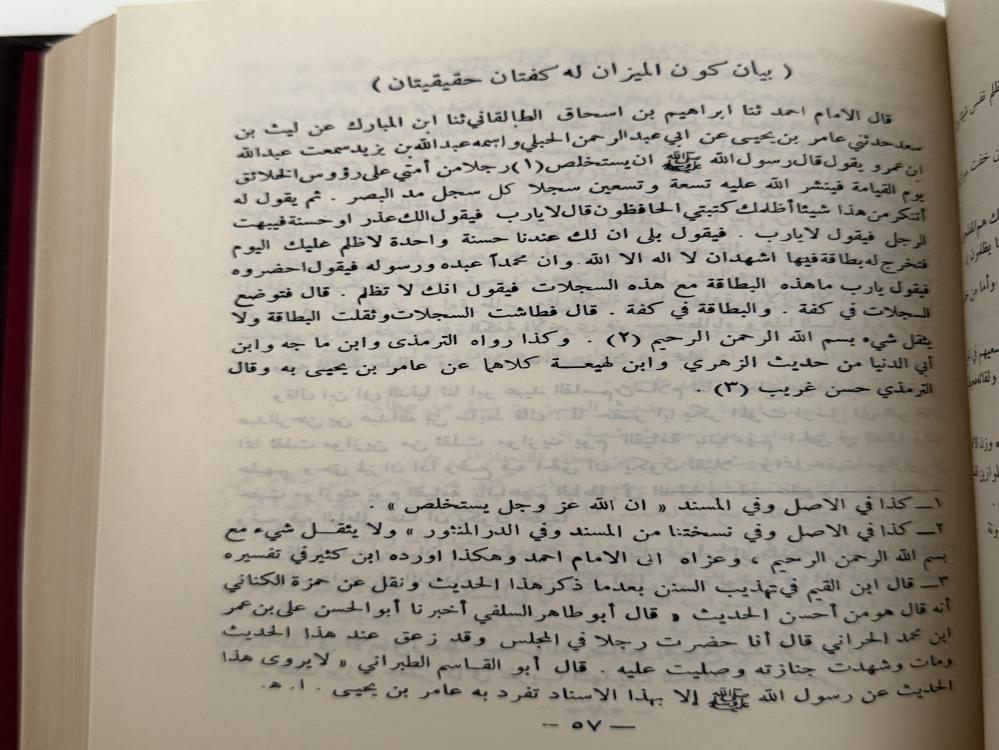 ( بيان كون الميزان له كفتان حقيقيتان )
قال الامام احمد ثنا ابراهيم بن اسحاق الطالقاني ثنا ابن المبارك عن ليث بن
سعد حدثني عامر بن يحيى عن ابي عبد الرحمن الحبلي واسمه عبد الله بن يزيد سمعت عبد الله
ابن عمرو يقول قال رسول الله ﷺ ان يستخلص (١) رجلا من أمتي على رؤوس الخلائق
يوم القيامة فينشر الله عليه تسعة وتسعين سجلا كل سجل مد البصر . ثم يقول له
أتنكر من هذا شيئا أظلمك كتبتي الحافظون قال لا يارب فيقول الك عذر او حسنة فيبهت
الرجل فيقول لا يارب . فيقول بلى ان لك عندنا حسنة واحدة لا ظلم عليك اليوم
فتخرج له بطاقة فيها اشهد ان لا اله الا الله . وان محمداً عبده ورسوله فيقول احضروه
فيقول يارب ما هذه البطاقة مع هذه السجلات فيقول انك لا تظلم . قال فتوضع
السجلات في كفة . والبطاقة في كفة . قال فطاشت السجلات وثقلت البطاقة ولا
يثقل شيء بسم الله الرحمن الرحيم (٢) . وكذا رواه الترمذى وابن ما جه وابن
أبي الدنيا من حديث الزهري وابن لهيعة كلاهما عن عامر بن يحيى به وقال
الترمذي حسن غريب (٣) .
١ــ كذا في الاصل وفي المسند « ان الله عز وجل يستخلص » .
٢ــ كذا في الاصل وفي نسختنا من المسند وفي الدر المنثور » ولا يثقل شيء مع
بسم الله الرحمن الرحيم ، وعزاه الى الامام احمد وهكذا اورده ابن كثير في تفسيره
٣ــ قال ابن القيم في تهذيب السنن بعدما ذكر هذا الحديث ونقل عن حمزة الكناني
أنه قال هو من أحسن الحديث « قال أبو طاهر السلفي أخبرنا أبو الحسن على بن عمر
ابن محمد الحراني قال أنا حضرت رجلا في المجلس وقد زعق عند هذا الحديث
ومات وشهدت جنازته وصليت عليه . قال أبو القاسم الطبراني « لا يروى هذا
الحديث عن رسول الله ﷺ إلا بهذا الاسناد تفرد به عامر بن يحيى . ا. ھ.
— ٥٧ —